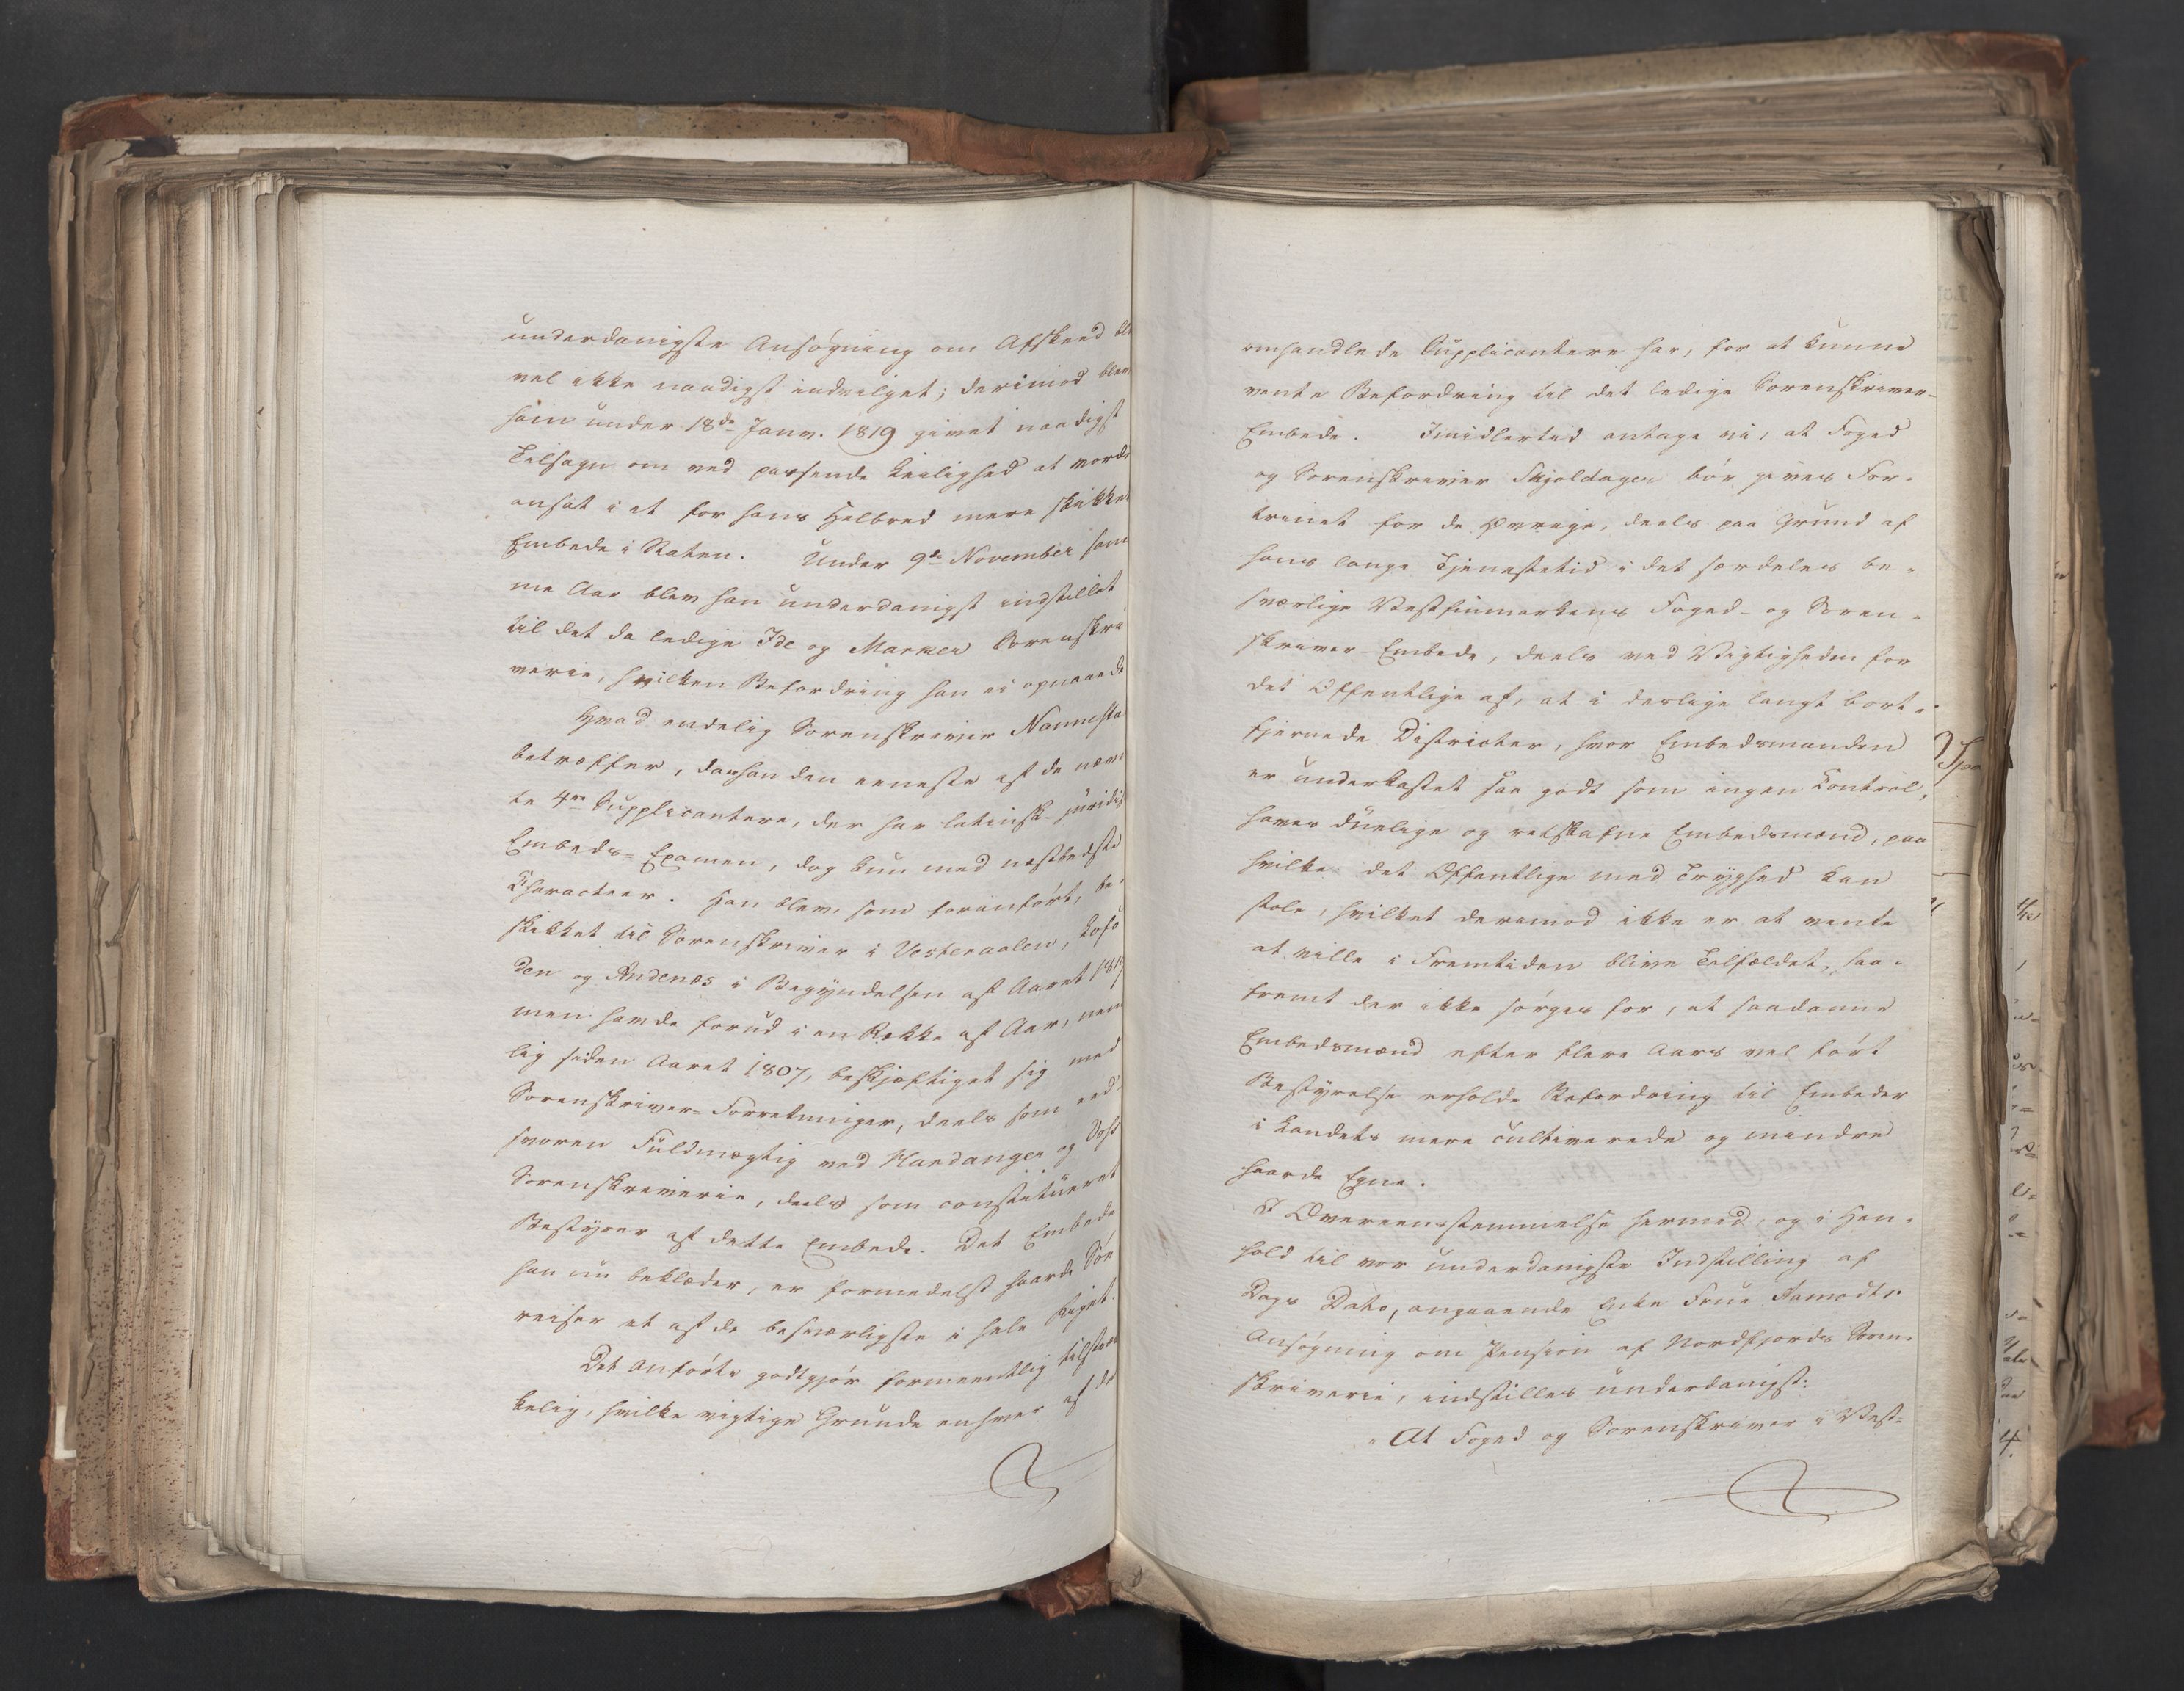 underdanigste Ansøgning om Afskeed ble
vel ikke naadigst indvilget; derimod blev
ham under 18de Janv. 1819 givet naadigst
Tilsagn om ved passende Leilighed at vorde
ansat i et for hans Helbred mere skikket
Embede i Staten. Under 9de November sam
me Aar blev han underdanigst indstillet
til det da ledige Ide og Marker Sorenskri
verie, hvilken Befordring han ei opnaaede
Hvad endelig Sorenskriver Nannesta
betræffer, da er han den eeneste af de nævn
te 4re Supplicantere, der har latinsk-juridisk
Embeds-Examen, dog kun med næstbedste
Characteer. Han blev, som foranført, be-
skikket til Sorenskriver i Vesteraalen, Lofo
den og Andenæs i Begyndelsen af Aaret
men havde forud i en Række af Aar, nem
lig siden Aaret 1807, beskjæftiget sig med
Sorenskriver-Forretninger, deels som eed-
svoren Fuldmægtig ved Hardanger og Voss
Sorenskriverie, deels som constitueret
Bestyrer af dette Embede. Det Embede
han nu beklæder, er formedelst haarde Søe
reiser et af de besværligste i hele Riget.
Det Anførte godtgjør formeentlig tilstræk
kelig, hvilke vigtige Grunde enhver af de
omhandlede Supplicantere har, for at kunne
vente Befordring til det ledige Sorenskriver-
Embede. Imidlertid antage vi, at Foged
og Sorenskriver Skjoldager bør gives For-
trinet for de Øvrige, deels paa Grund af
hans lange Tjenestetid i det særdeles be-
sværlige Vestfinmarkens Foged- og Soren-
skriver-Embede, deels ved Vigtigheden for
det Offentlige af, at i deslige langt bort-
fjernede Districter, hvor Embedsmanden
er underkastet saa godt som ingen Control,
haves duelige og retskafne Embedsmænd, paa
hvilke det Offentlige med Tryghed kan
stole, hvilket derimod ikke er at vente
at ville i Fremtiden blive Tilfældet, saa-
fremt der ikke sørges for, at saadanne
Embedsmænd efter flere Aars vel ført
Bestyrelse erholde Befordring til Embeder
i Landets mere cultiverede og mindre
haarde Egne.
I Overeensstemmelse hermed og i Hen-
hold til vor underdanigste Indstilling af
Dags Dato, angaaende Enke Frue Aamodts
Ansøgning om Pension af Nordfjords Soren-
skriverie, indstilles underdanigst:
"At Foged og Sorenskriver i Vest-